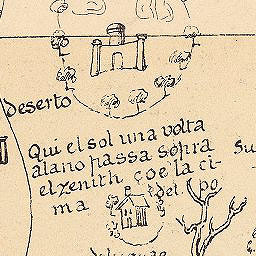 deserto
Qui el sol una volta
alano passa sopra
el zenith çoe la ci-
ma del po
Su